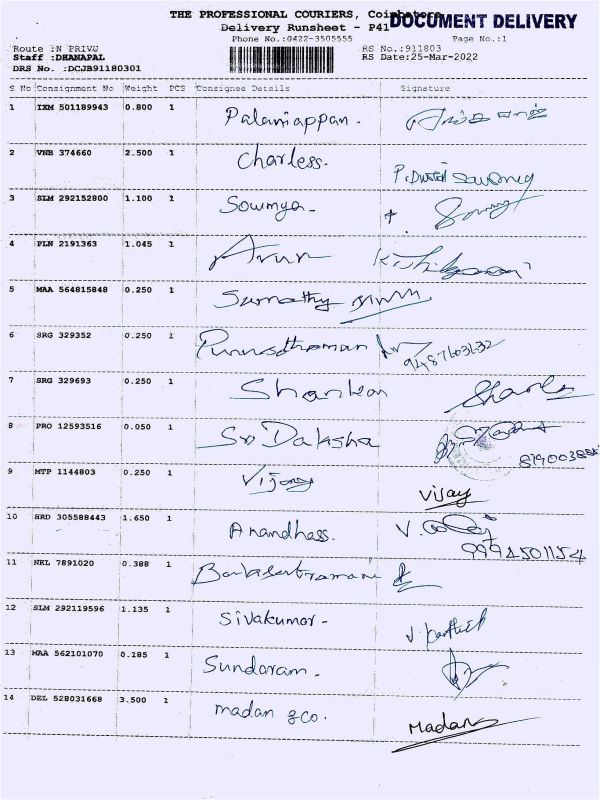 THE PROFESSIONAL COURIERS, Coimbatore
DOCUMENT DELIVERY
Delivery Runsheet - P41
Phone No.:0422-3505555 Page No.:1
Route :N PRIVU RS No.:911803
Staff :DHANAPAL RS Date:25-Mar-2022
DRS No. :DCJB91180301
S No Consignment No Weight PCS Consignee Details Signature
1 IXM 501189943 0.800 1 Palaniappan.
2 VNB 374660 2.500 1 Charless.
3 SLM 292152800 1.100 1 Sowmya-
4 PLN 2191363 1.045 1 Arun
5 MAA 564815848 0.250 1 Sumathy
6 SRG 329352 0.250 1 Purusothaman
7 SRG 329693 0.250 1 Shankar
8 PRO 12593516 0.050 1 Sri Daksha
9 MTP 1144803 0.250 1 Vijay Vijay
10 HRD 305588443 1.650 1 Anandhass.
11 NKL 7891020 0.388 1
12 SLM 292119596 1.135 1 Sivakumar- V. Karthick
13 MAA 562101070 0.185 1 Sundaram.
14 DEL 528031668 3.500 1 madan &co. Madan